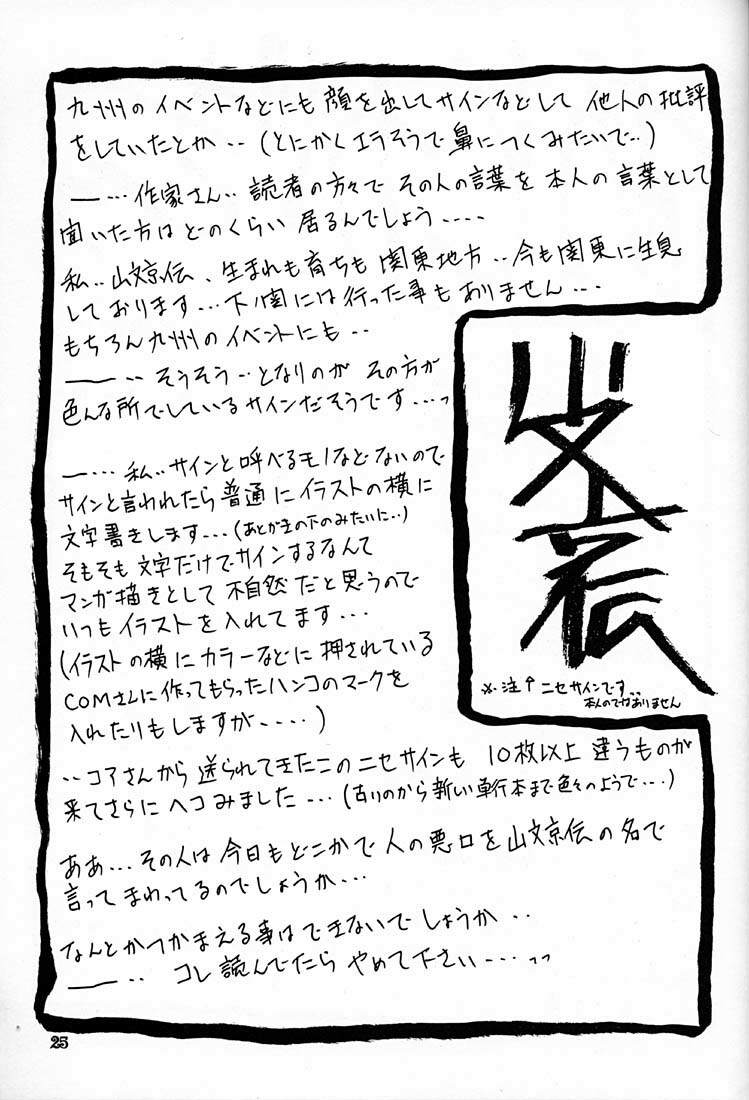 九州のイベントなどにも顔を出してサインなどして 他人の批評
をしていたとか‥(とにかくエラそうで鼻につくみたいで‥)
―…作家さん‥読者の方々で その人の言葉を 本人の言葉として
聞いた方は どのくらい 居るんでしょう‥‥
私‥山文京伝、生まれも育ちも 関東地方‥今も関東に生息
しております…下ノ関には行った事もありません…
もちろん九州のイベントにも‥
―‥そうそう‥となりのが その方が
色んな所でしているサインだそうです…っ
―…私‥サインと呼べるモノなどないので
サインと言われたら普通にイラストの横に
文字書きします…(あとがきの下のみたいに‥)
そもそも文字だけでサインするなんて
マンガ描きとして 不自然だと思うので
いつもイラストを入れてます…
(イラストの横にカラーなどに押されている
COMさんに作ってもらったハンコのマークを
入れたりもしますが‥‥)
山文京伝
※注↑ニセサインです‥
本人のではありません
‥コアさんから送られてきたこのニセサインも 10枚以上違うものが
来てさらにヘコみました…(古いのから新しい単行本まで色々のようで…)
ああ…その人は今日もどこかで人の悪口を山文京伝の名で
言ってまわってるのでしょうか…
なんとかつかまえる事はできないでしょうか‥
―‥ コレ読んでたら やめて下さい…っっ
25